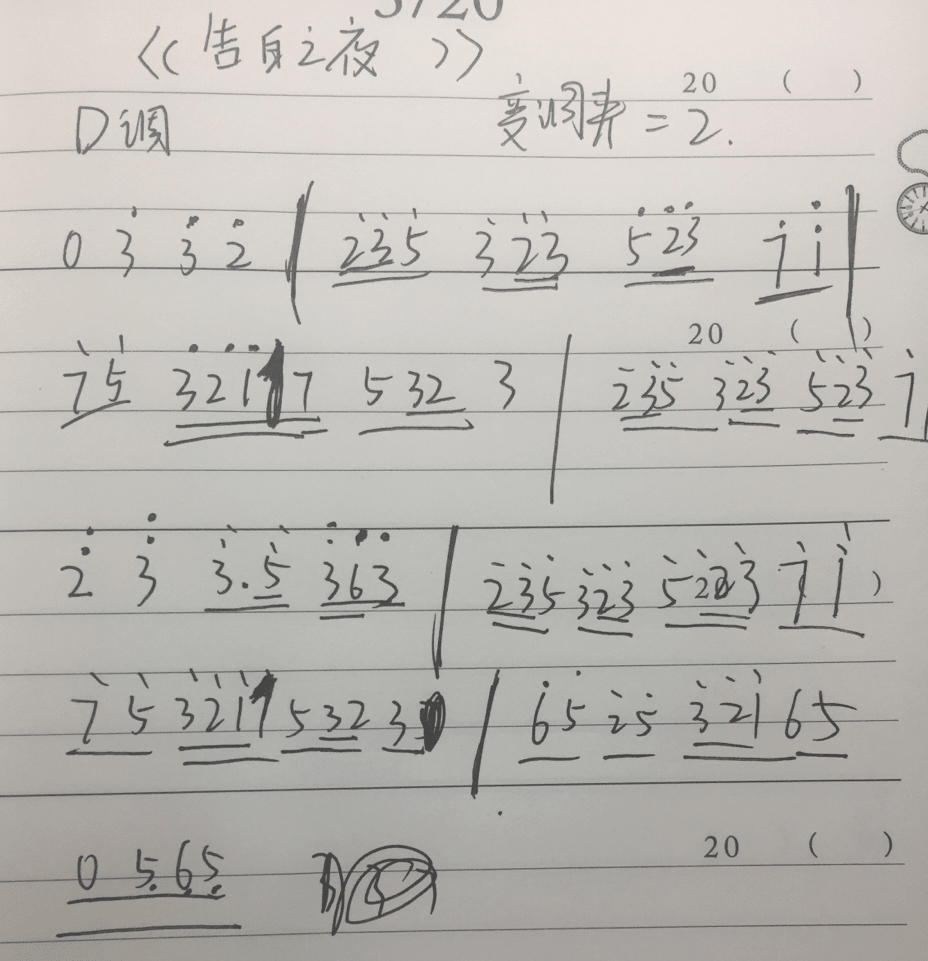 《告白之夜》
20 ( )
D调 变调夹 = 2.
0 3̇ 3̇ 2̇ | 2̇3̇5̇ 3̇2̇3̇ 5̇2̇3̇ 7̇ i̇ |
20 ( )
7̇5̇ 3̇2̇1̇7 5 32 3 | 2̇3̇5̇ 3̇2̇3̇ 5̇2̇3̇ 7̇
2̇ 3̇ 3̇.5̇ 3̇6̇3̇ | 2̇3̇5̇ 3̇2̇3̇ 5̇2̇3̇ 7̇ 1̇ )
7̇ 5̇ 3̇2̇1̇ 5 32 3 | 6̇5̇ 2̇5̇ 3̇2̇1̇ 65
20 ( )
0 5̣6̣5̣